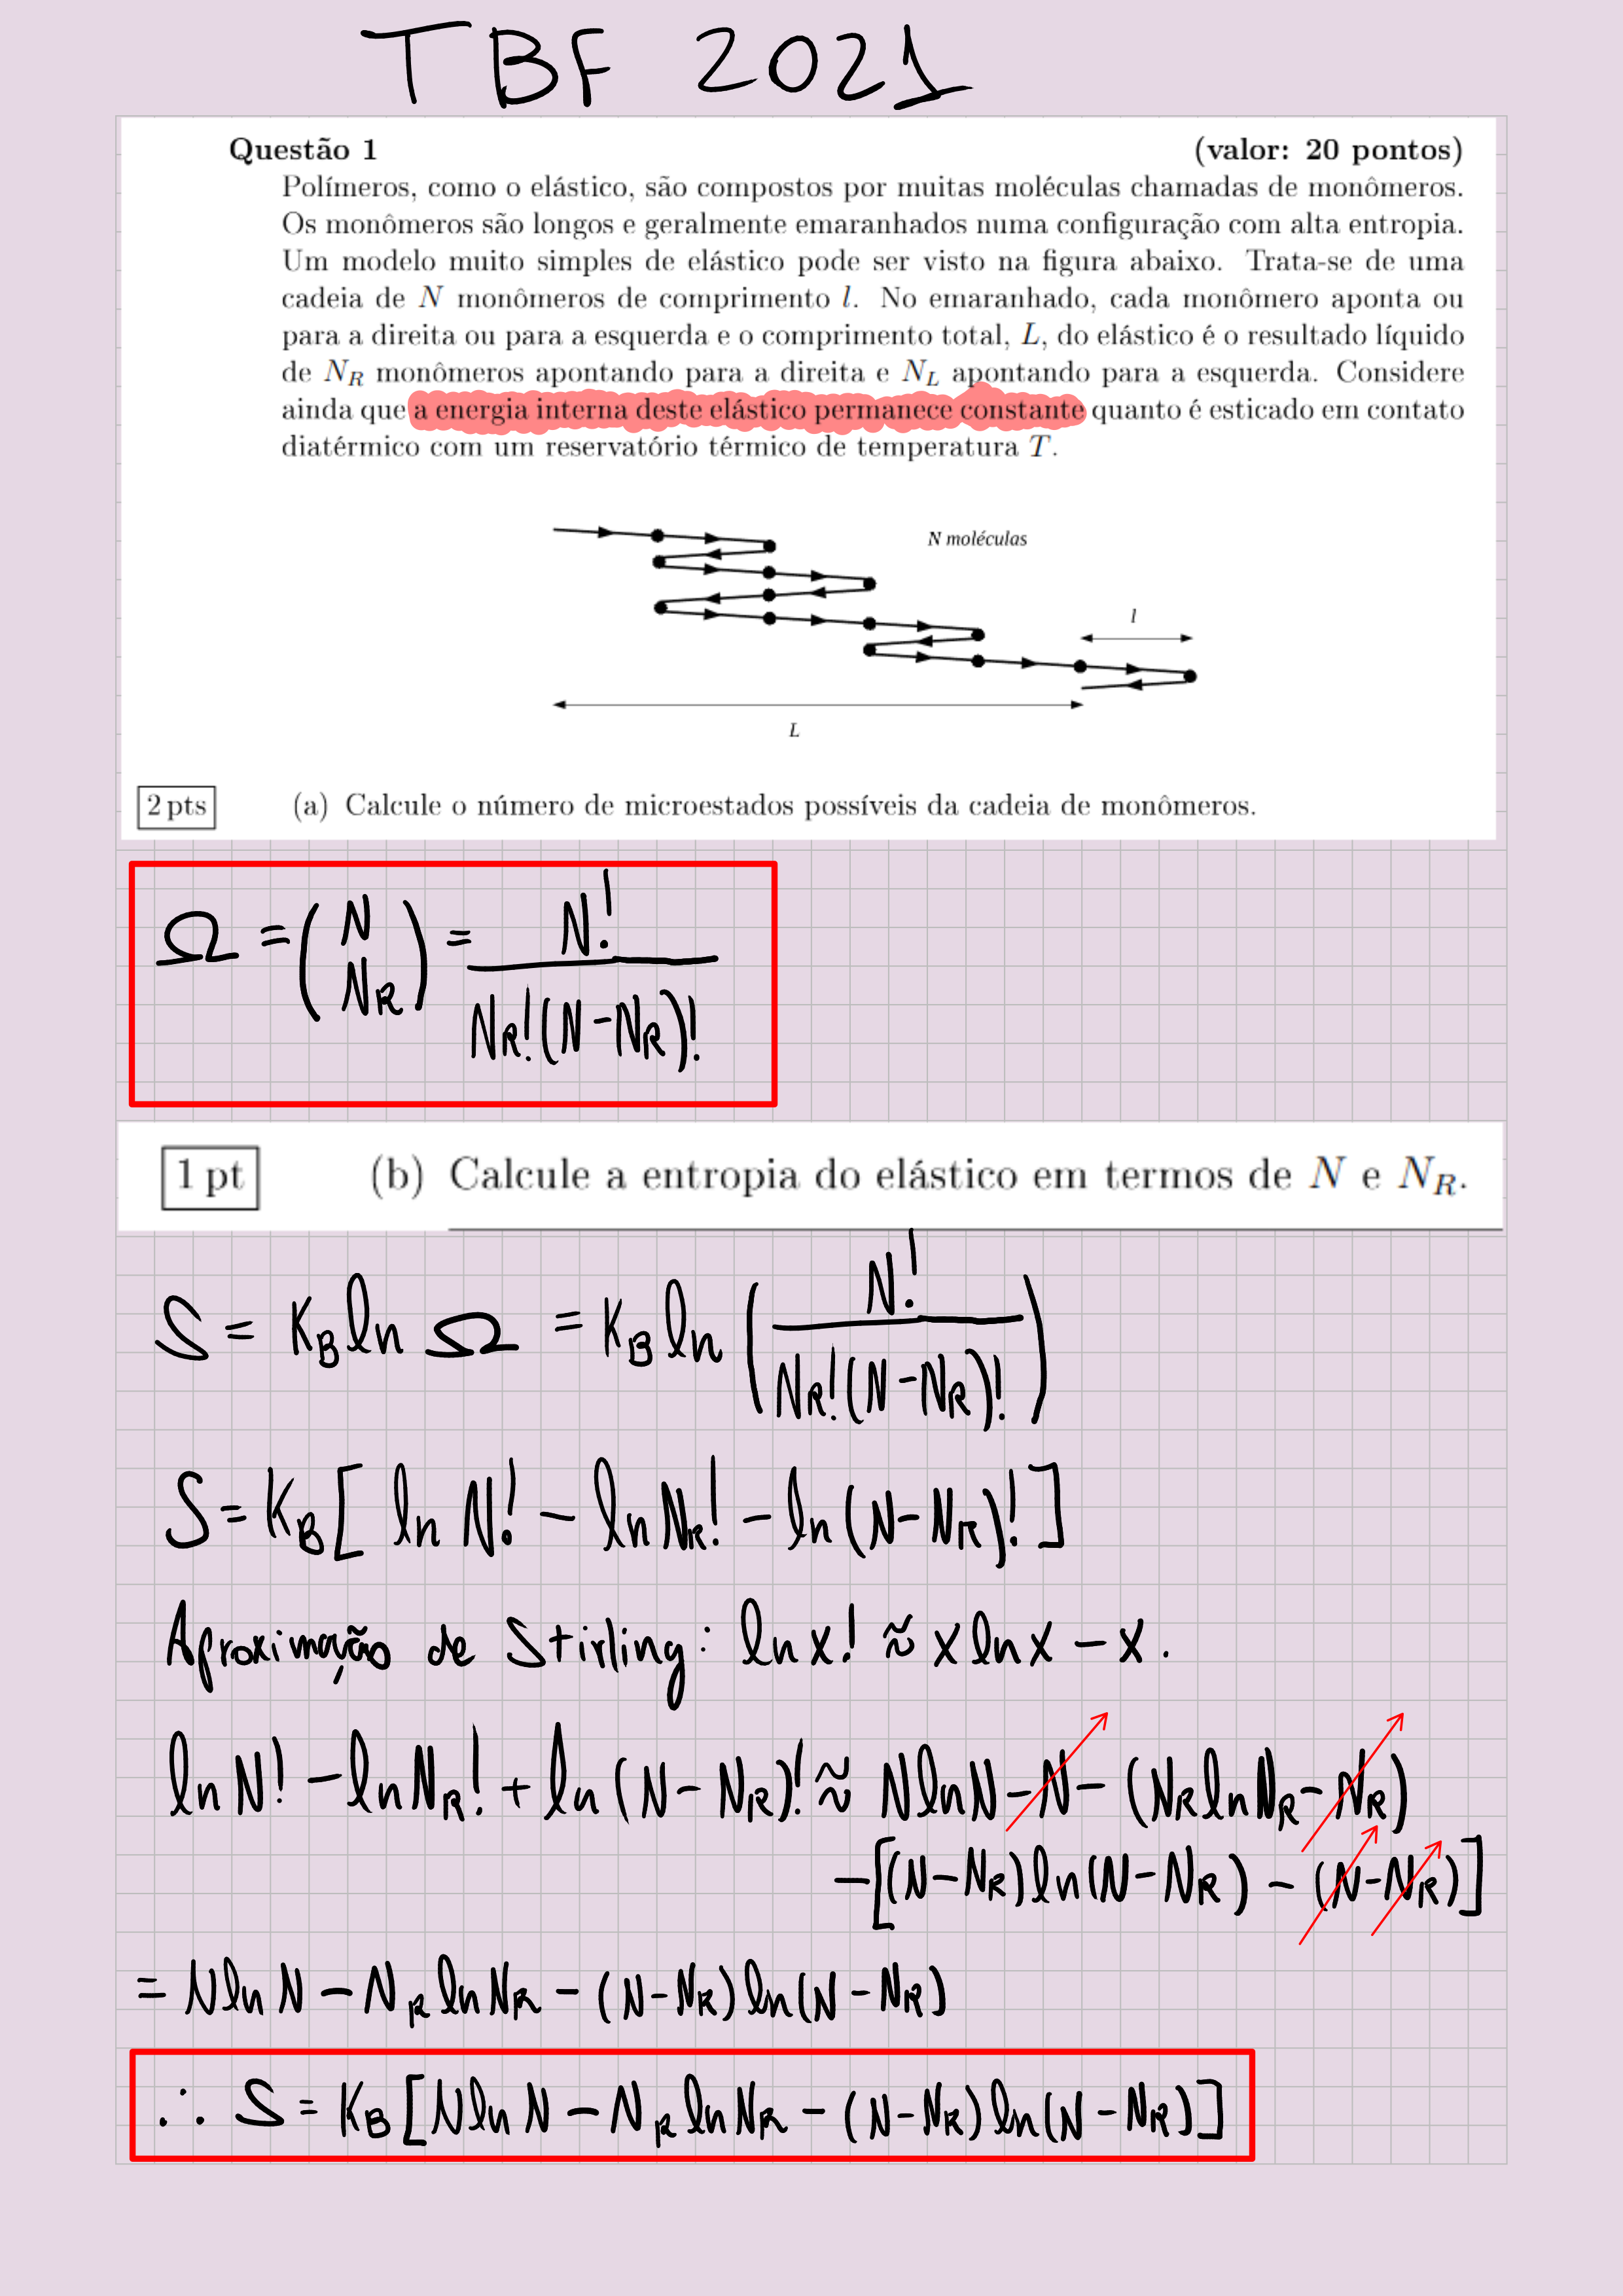 TBF 2021
Questão 1 (valor: 20 pontos)
Polímeros, como o elástico, são compostos por muitas moléculas chamadas de monômeros.
Os monômeros são longos e geralmente emaranhados numa configuração com alta entropia.
Um modelo muito simples de elástico pode ser visto na figura abaixo. Trata-se de uma
cadeia de N monômeros de comprimento l. No emaranhado, cada monômero aponta ou
para a direita ou para a esquerda e o comprimento total, L, do elástico é o resultado líquido
de N_R monômeros apontando para a direita e N_L apontando para a esquerda. Considere
ainda que a energia interna deste elástico permanece constante quanto é esticado em contato
diatérmico com um reservatório térmico de temperatura T.
N moléculas
l
L
2 pts (a) Calcule o número de microestados possíveis da cadeia de monômeros.
Ω = (N N_R) = N! / N_R!(N-N_R)!
1 pt (b) Calcule a entropia do elástico em termos de N e N_R.
S = K_B ln Ω = K_B ln (N! / N_R!(N-N_R)!)
S = K_B [ ln N! - ln N_R! - ln (N-N_R)! ]
Aproximação de Stirling: ln x! ≈ x ln x - x.
ln N! - ln N_R! + ln (N - N_R)! ≈ N ln N - N - (N_R ln N_R - N_R)
-[(N-N_R) ln(N-N_R) - (N-N_R)]
= N ln N - N_R ln N_R - (N-N_R) ln(N-N_R)
∴ S = K_B [N ln N - N_R ln N_R - (N-N_R) ln(N-N_R)]